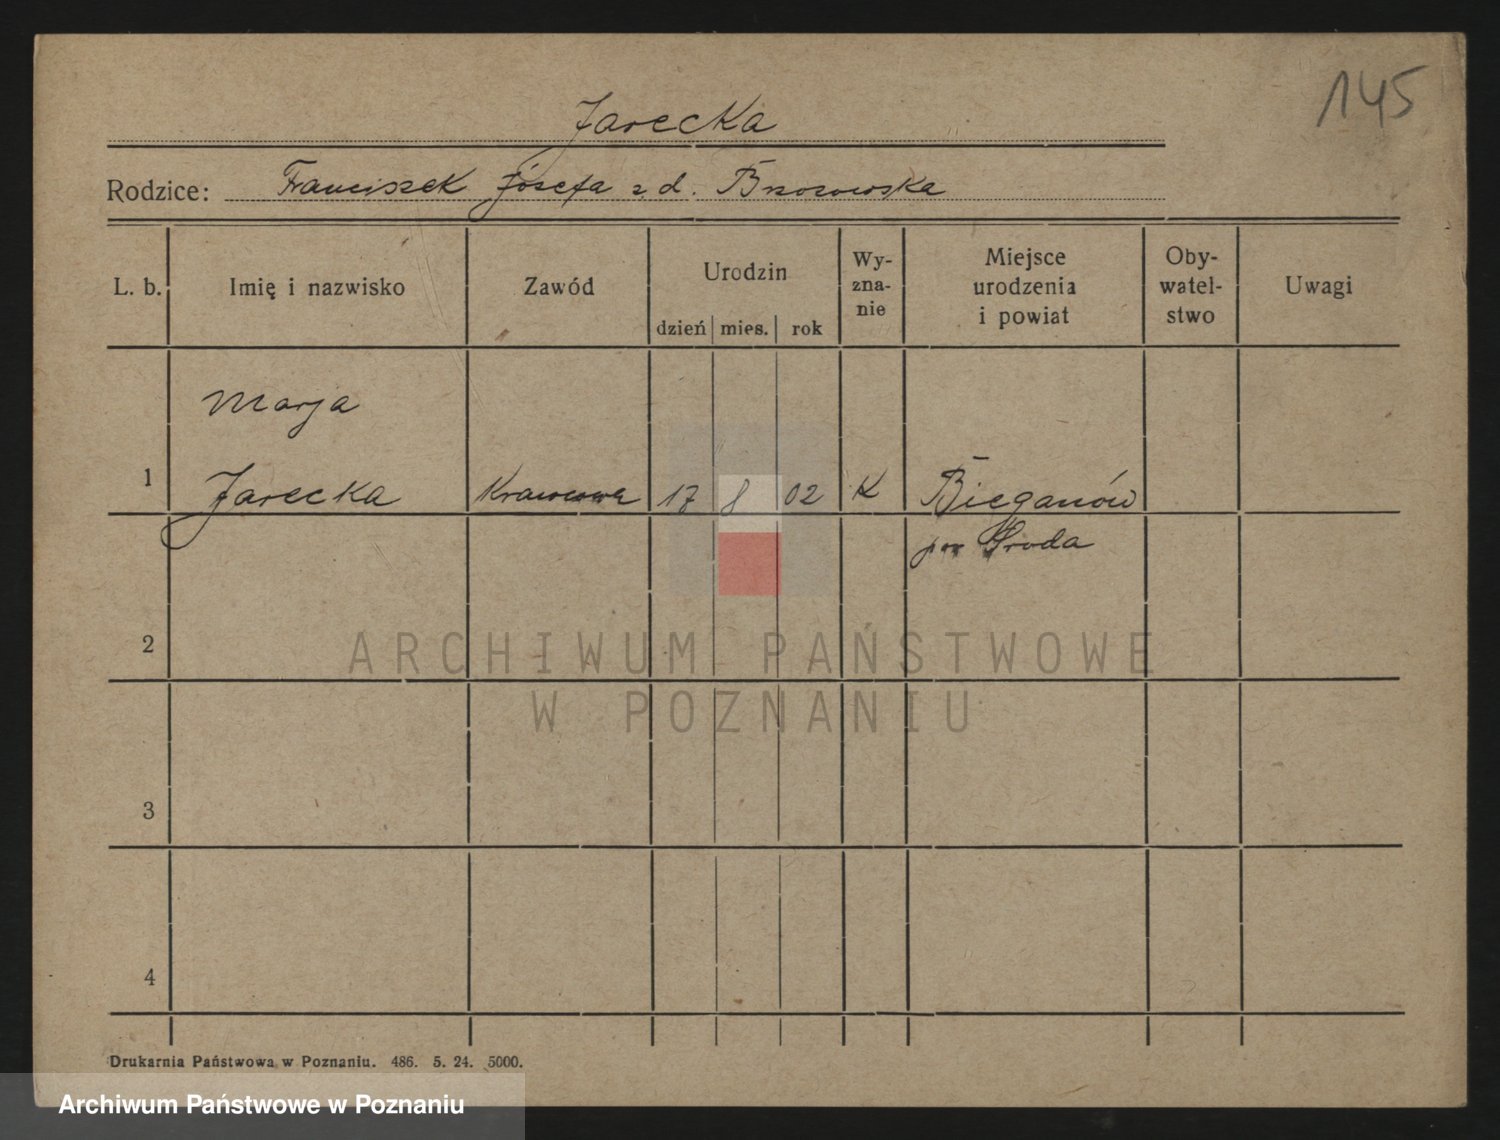 145
Jarecka
Rodzice: Franciszek Józefa z d. Brzozowska
L. b. Imię i nazwisko Zawód Urodzin dzień mies. rok Wy-zna-nie Miejsce urodzenia i powiat Oby-watel-stwo Uwagi
Marja
1 Jarecka Krawcowa 17 8 02 K Bieganów
pow Środa
2
ARCHIWUM PAŃSTWOWE
W POZNANIU
3
4
Drukarnia Państwowa w Poznaniu. 486. 5. 24. 5000.
Archiwum Państwowe w Poznaniu